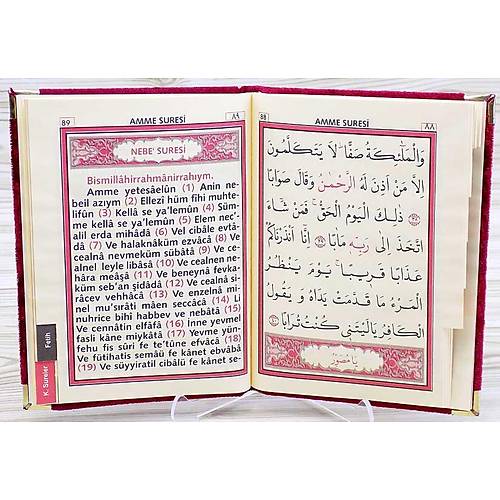 89 AMME SURESİ ٨٩
NEBE' SURESİ
Bismillâhirrahmânirrahıym.
Amme yetesâelûn (1) Anin ne-
beil azıym (2) Ellezî hüm fîhi muhte-
lifûn (3) Kellâ se ya'lemûn (4) Süm-
me kellâ se ya'lemûn (5) Elem nec'-
alil erda mihâdâ (6) Vel cibâle evtâ-
dâ (7) Ve halaknâküm ezvâcâ (8) Ve
cealnâ nevmeküm sübâtâ (9) Ve ce-
alnel leyle libâsâ (10) Ve cealnen ne-
hâra meâşâ (11) Ve beneynâ fevka-
küm seb'an şidâdâ (12) Ve cealnâ si-
râcev vehhâcâ (13) Ve enzelnâ mi-
nel mu'sırâti mâen seccâcâ (14) Li
nuhrice bihî habbev ve nebâtâ (15)
Ve cennâtin elfâfâ (16) İnne yevmel
fasli kâne miykâtâ (17) Yevme yün-
fehu fis sûri fe te'tûne efvâcâ (18)
Ve fütihatis semâü fe kânet ebvâbâ
(19) Ve süyyiratil cibâlü fe kânet se-
Fetih
K. Sureler
88 AMME SURESİ ٨٨
وَالْمَلٰٓئِكَةُ صَفًّاۜ لَا يَتَكَلَّمُونَ
اِلَّا مَنْ اَذِنَ لَهُ الرَّحْمٰنُ وَقَالَ صَوَابًا
﴿٣٨﴾ ذٰلِكَ الْيَوْمُ الْحَقُّۚ فَمَنْ شَٓاءَ
اتَّخَذَ اِلٰى رَبِّه۪ مَاٰبًا ﴿٣٩﴾ اِنَّٓا اَنْذَرْنَاكُمْ
عَذَابًا قَر۪يبًاۚ يَوْمَ يَنْظُرُ
الْمَرْءُ مَا قَدَّمَتْ يَدَاهُ وَيَقُولُ
الْكَافِرُ يَا لَيْتَن۪ي كُنْتُ تُرَابًا ﴿٤٠﴾